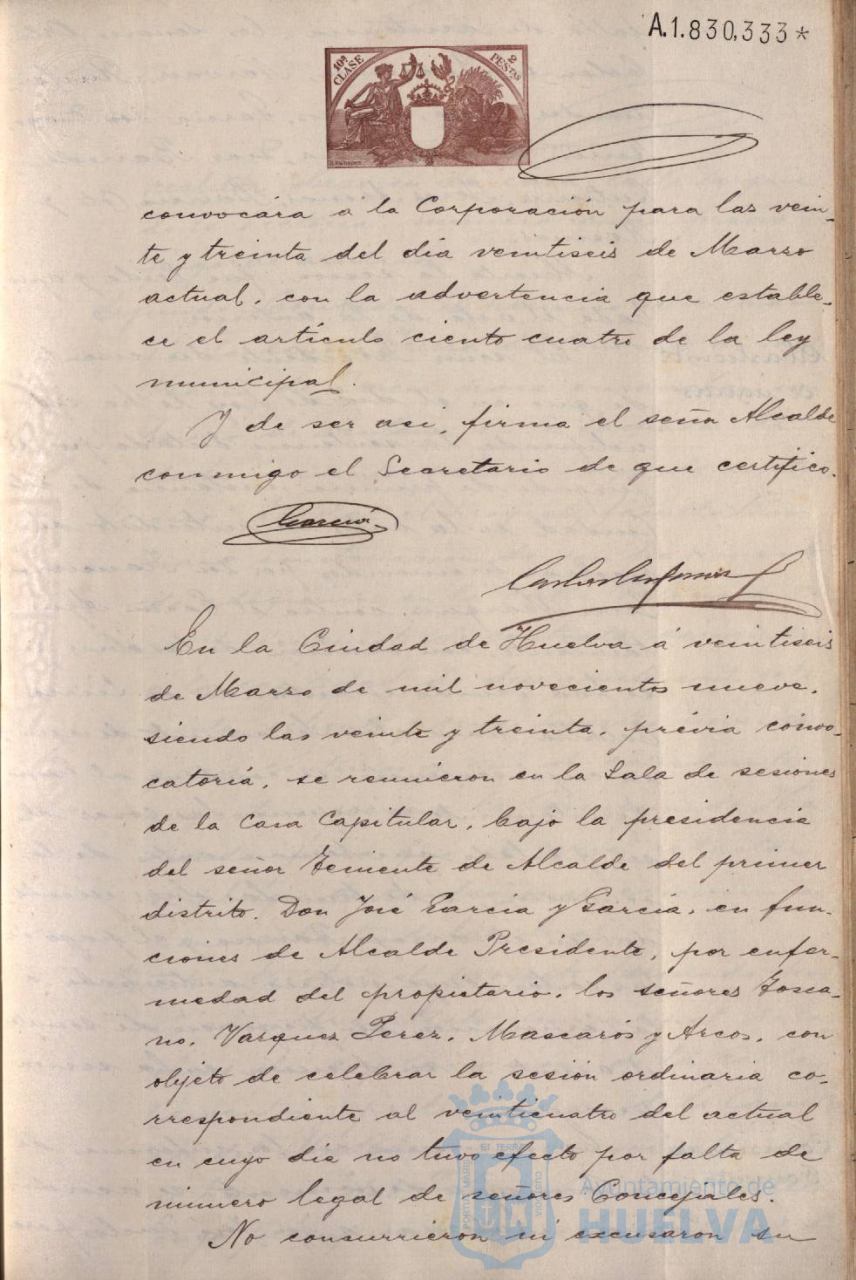 A.1.830,333*
10ª CLASE
2 PESETAS
convocára a la Corporación para las vein-
te y treinta del dia veintiseis de Marzo
actual, con la advertencia que estable-
ce el artículo ciento cuatro de la ley
municipal.
Y de ser asi, firma el señor Alcalde
conmigo el Secretario de que certifico.
García
En la Ciudad de Huelva á veintiseis
de Marzo de mil novecientos nueve,
siendo las veinte y treinta, prévia convo-
catoria, se reunieron en la Sala de sesiones
de la Casa Capitular, bajo la presidencia
del señor Teniente de Alcalde del primer
distrito, Don José García y García, en fun-
ciones de Alcalde Presidente, por enfer-
medad del propietario, los señores Tosca-
no, Vazquez Perez, Mascarós y Arcos, con
objeto de celebrar la sesión ordinaria co-
rrespondiente al veinticuatro del actual
en cuyo dia no tuvo efecto por falta de
número legal de señores Concejales.
No concurrieron ni excusaron su
Ayuntamiento de
HUELVA